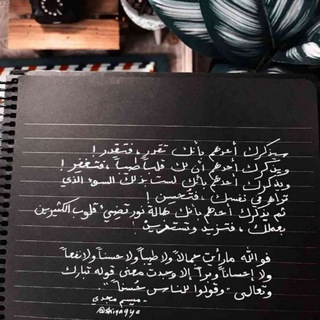 سيذكرك أحدهم بأنك تقدر، فتقدر!
ويذكرك أحدهم أن لك قلباً طيباً، فتغفر!
ويذكرك أحدهم بأنك لست بذلك السوء الذي
تراه في نفسك، فتحسن!
ثم يذكرك أحدهم بأنك هالة نور تضيء قلوب الكثيرين
بعملك، فتزيد وتستمر..
فو الله ما رأيت جمالاً ولا طيباً ولا حسناً ولا نفعاً
ولا إحساناً وبراً إلا وجدت معنى قوله تبارك
وتعالى "وقولوا للناس حُسناً"
- ميسم مجدي